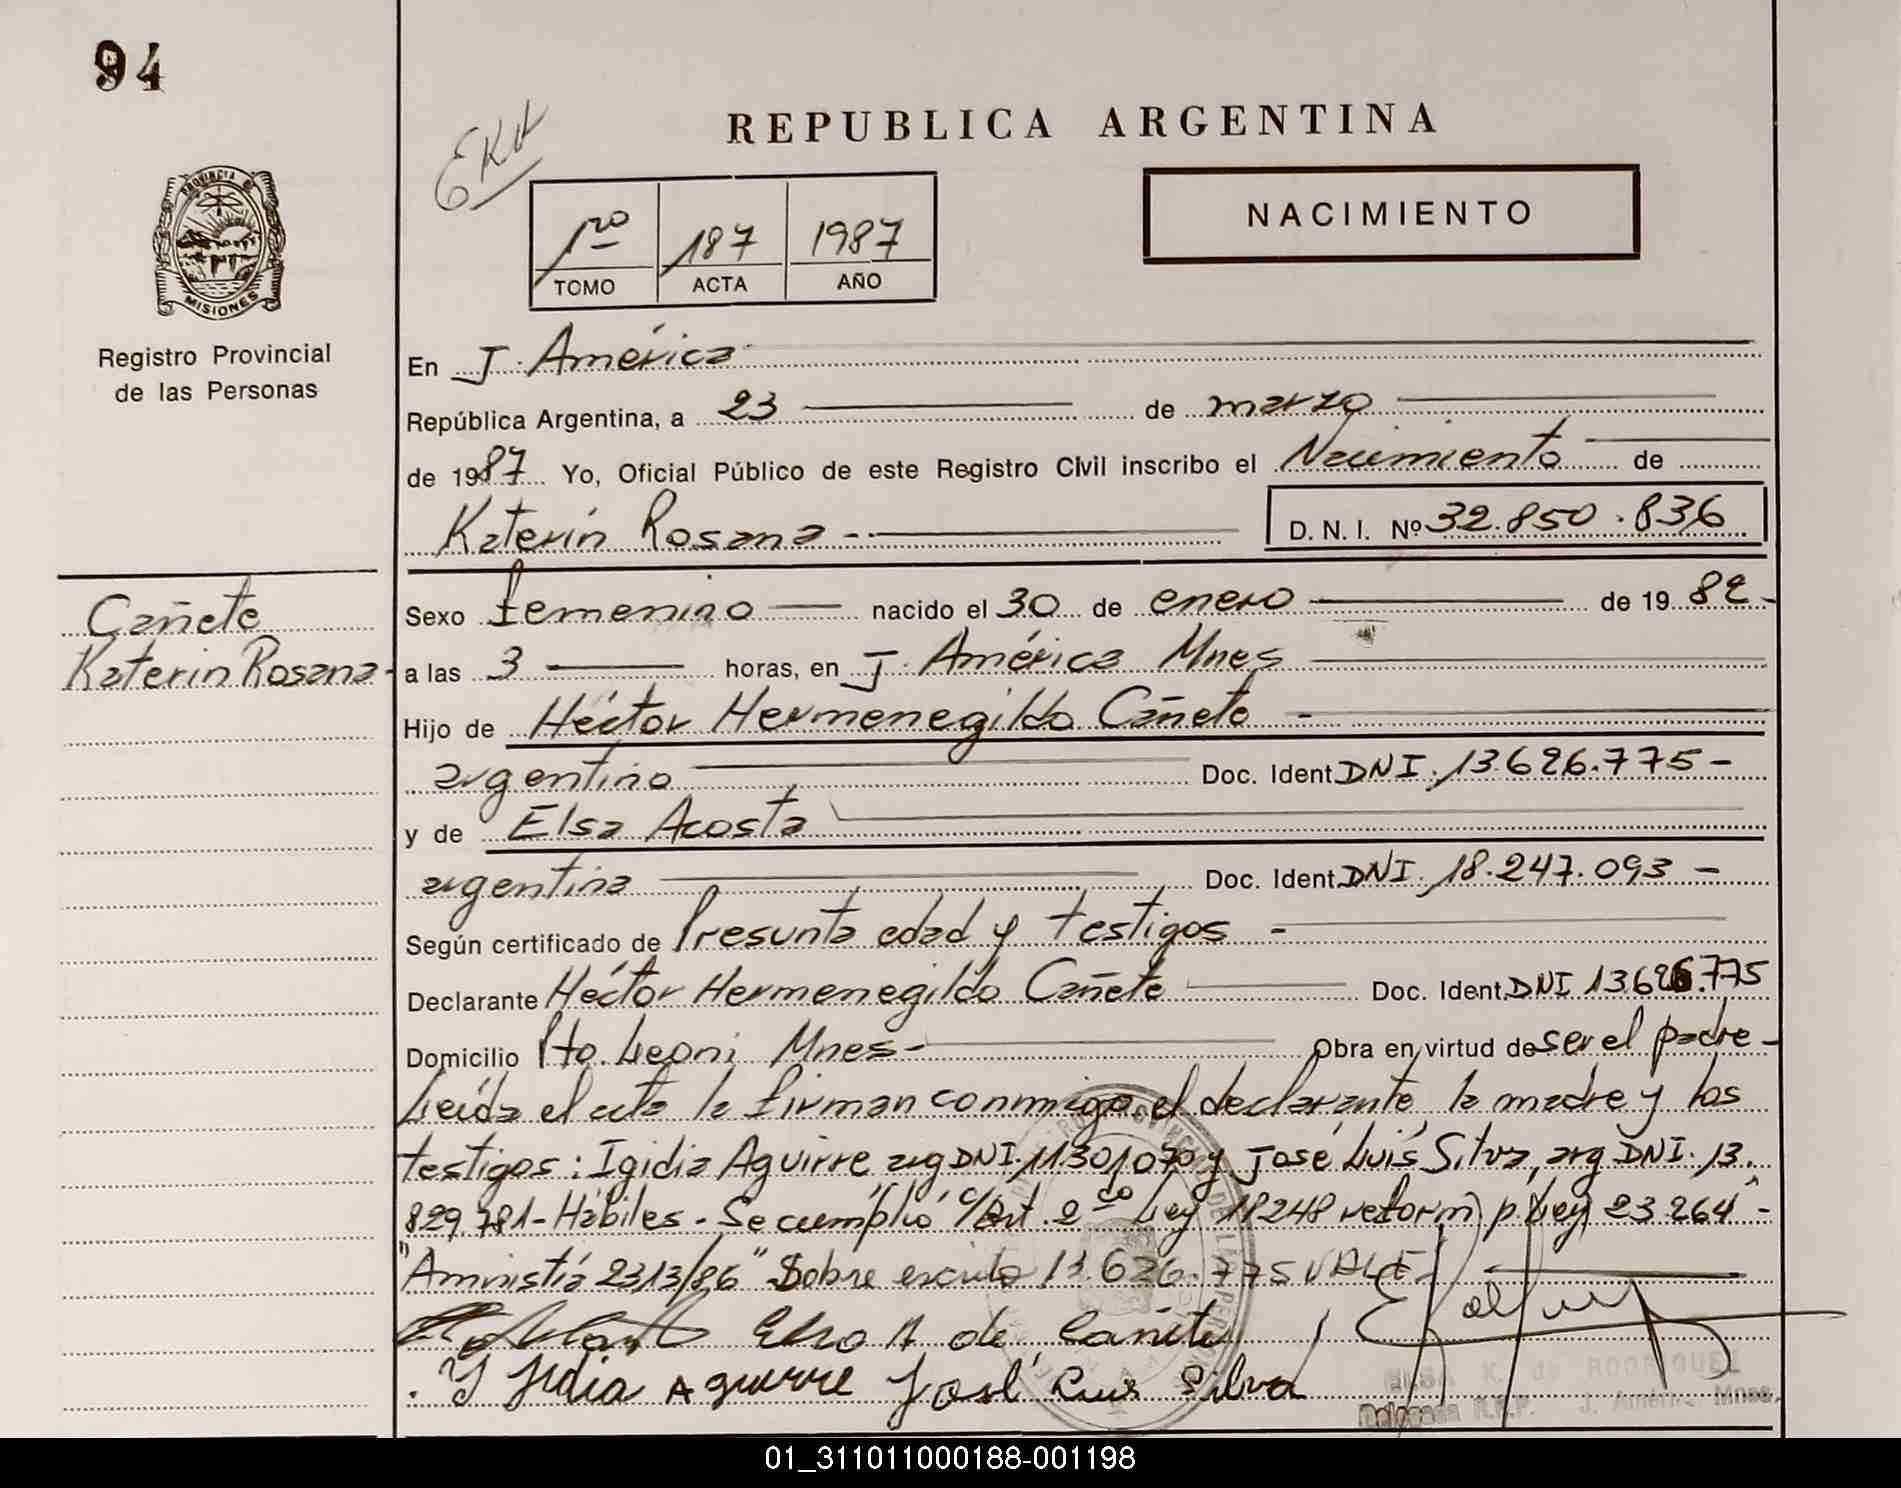 94
REPUBLICA ARGENTINA
NACIMIENTO
1ro 187 1987
TOMO ACTA AÑO
PROVINCIA DE
MISIONES
Registro Provincial
de las Personas
En J. América
República Argentina, a 23 de marzo
de 1987 Yo, Oficial Público de este Registro Civil inscribo el Nacimiento de
Katerin Rosana D. N. I. Nº 32.850.836
Cañete
Katerin Rosana
Sexo femenino nacido el 30 de enero de 19 82
a las 3 horas, en J. América Mnes
Hijo de Héctor Hermenegildo Cañete
argentino Doc. Ident. DNI. 13.626.775
y de Elsa Acosta
argentina Doc. Ident. DNI. 18.247.093
Según certificado de Presunta edad y testigos
Declarante Héctor Hermenegildo Cañete Doc. Ident. DNI 13.626.775
Domicilio Pto. Leoni Mnes Obra en virtud de ser el padre
Leída el acta la firman conmigo el declarante la madre y los
testigos: Igidia Aguirre arg DNI. 11301070 y José Luis Silva, arg DNI. 13.
829.781 - Hábiles. - Se cumplió c/Art. 2do Ley 18248 reform p. Ley 23.264 -
"Amnistía 2313/86" Sobre escrito 13.626.775 VALE
Elsa A de Cañete
Y Jidia Aguirre José Luis Silva
ELSA K. de RODRIGUEZ
Delegada R.P.P. J. América Mnes.
01_311011000188-001198